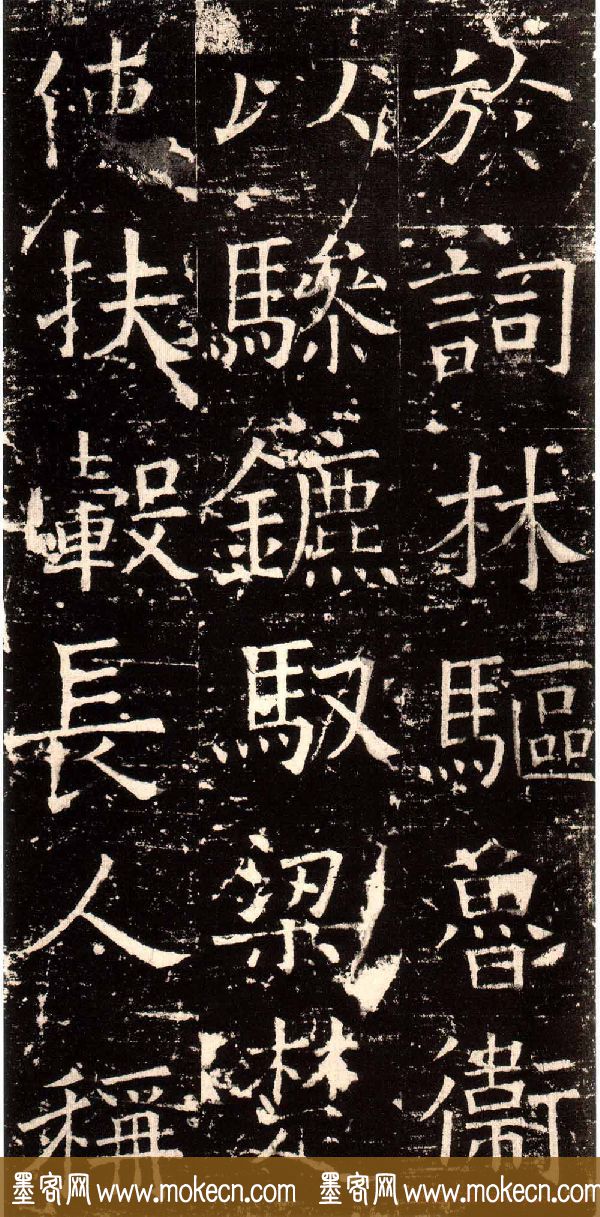 於詞林驅魯衛
以驂鑣馭梁楚
使扶轂長人稱
墨客网 www.mokecn.com 墨客网 www.mokecn.com